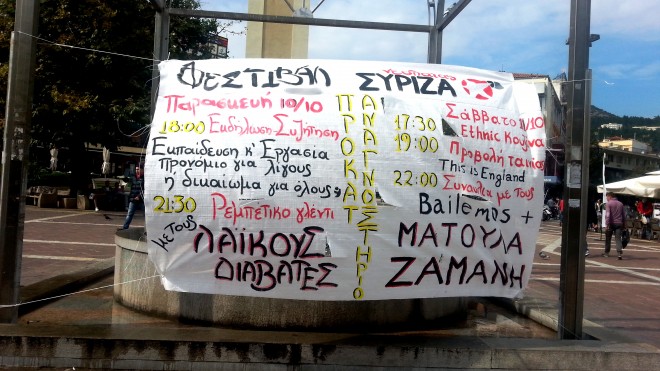 Φεστιβάλ νεολαίας ΣΥΡΙΖΑ
Παρασκευή 10/10
18:00 Εκδήλωση-Συζήτηση
Εκπαίδευση κ' Εργασία
προνόμιο για λίγους
ή δικαίωμα για όλους;
21:30 Ρεμπέτικο γλέντι
με τους ΛΑΪΚΟΥΣ
ΔΙΑΒΑΤΕΣ
ΠΡΟΚΑΤ
ΑΝΑΓΝΩΣΤΗΡΙΟ
Σάββατο 11/10
17:30 Ethnic Κουζίνα
19:00 Προβολή ταινίας
This is England
22:00 Συναυλία με τους
Bailemos +
ΜΑΤΟΥΛΑ
ΖΑΜΑΝΗ